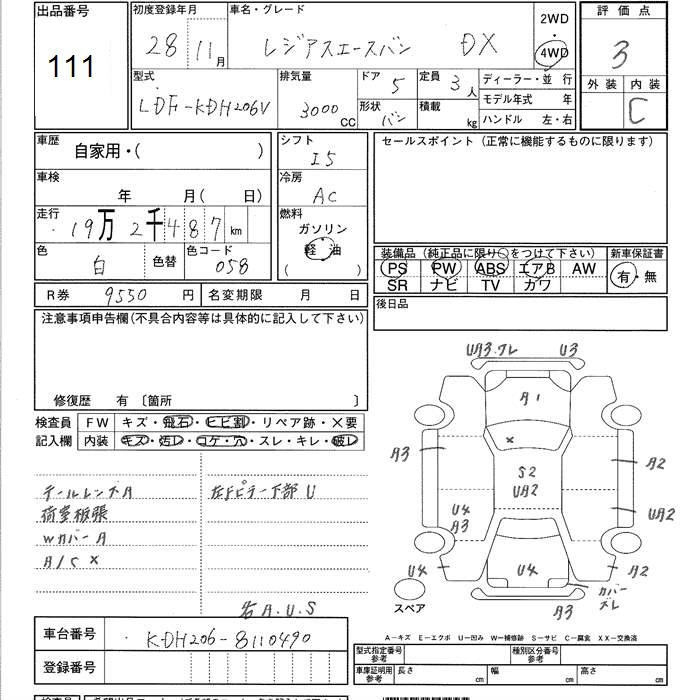 出品番号 初度登録年月 車名・グレード 2WD 評価点
111 28 11月 レジアスエースバン DX ・ 3
4WD
外装 内装
型式 排気量 ドア 5 定員 3人 ディーラー・並 行
モデル年式 年 C
LDF-KDH206V 3000cc 形状 バン 積載 kg ハンドル 左・右
車歴 シフト セールスポイント（正常に機能するものに限ります）
自家用・（ ） I5
車検 冷房
年 月（ 日） AC
走行 燃料
19万2千487km ガソリン
色 色替 色コード 軽油 装備品（純正品に限り○をつけて下さい） 新車保証書
白 058 （ ） PS PW ABS エアB AW 有・無
SR ナビ TV カワ
R券 9550円 名変期限 月 日 後日品
注意事項申告欄(不具合内容等は具体的に記入して下さい)
修復歴 有 〔箇所 〕
検査員 FW キズ・飛石・ヒビ割・リペア跡・×要
記入欄 内装 キズ・汚レ・コゲ・穴・スレ・キレ・破レ
テールレンズA 左Fピラー下部 U
荷室板張
WカバーA
A/C ×
名A.U.S
車台番号 KDH206-8110490
登録番号
UA3.ワレ U3
A1
A3 × A2
S2
UA2
U4 UA2
A3
U4 U4 A2
カバーズレ
スペア A3
A－キズ E－エクボ U－凹み W－補修跡 S－サビ C－腐食 XX－交換済
型式指定番号 参考 種別区分番号 参考
車庫証明用 参考 長さ cm 幅 cm 高さ cm